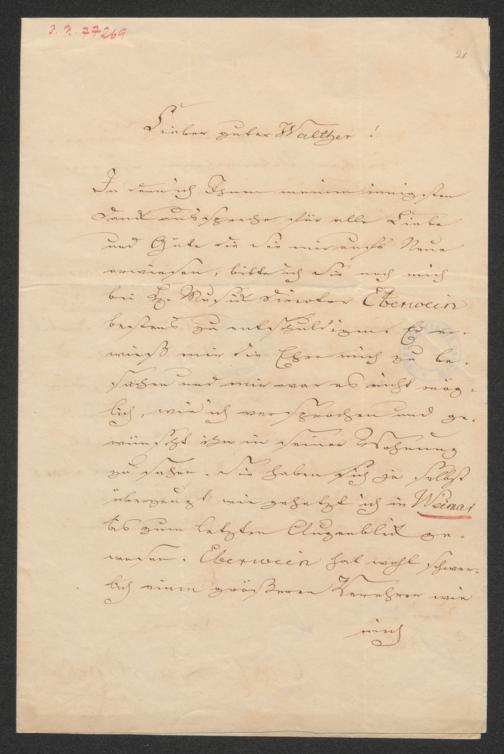 J. N. 77269
21
Lieber guter Walther!
Indem ich Ihnen meinen innigsten
Dank ausspreche für alle Liebe
und Güte die Sie mir aufs Neue
erwiesen, bitte ich Sie noch mich
bei H. Musik Director Eberwein
bestens zu entschuldigen. Er er-
wieß mir die Ehre mich zu be-
suchen und mir war es nicht mög-
lich, wie ich versprochen und ge-
wünscht ihn in seiner Wohnung
zu sehen. Sie haben sich ja selbst
überzeugt wie gehetzt ich in Weimar
bis zum letzten Augenblick ge-
wesen. Eberwein hat wohl schwer-
lich einen größeren Verehrer wie
mich